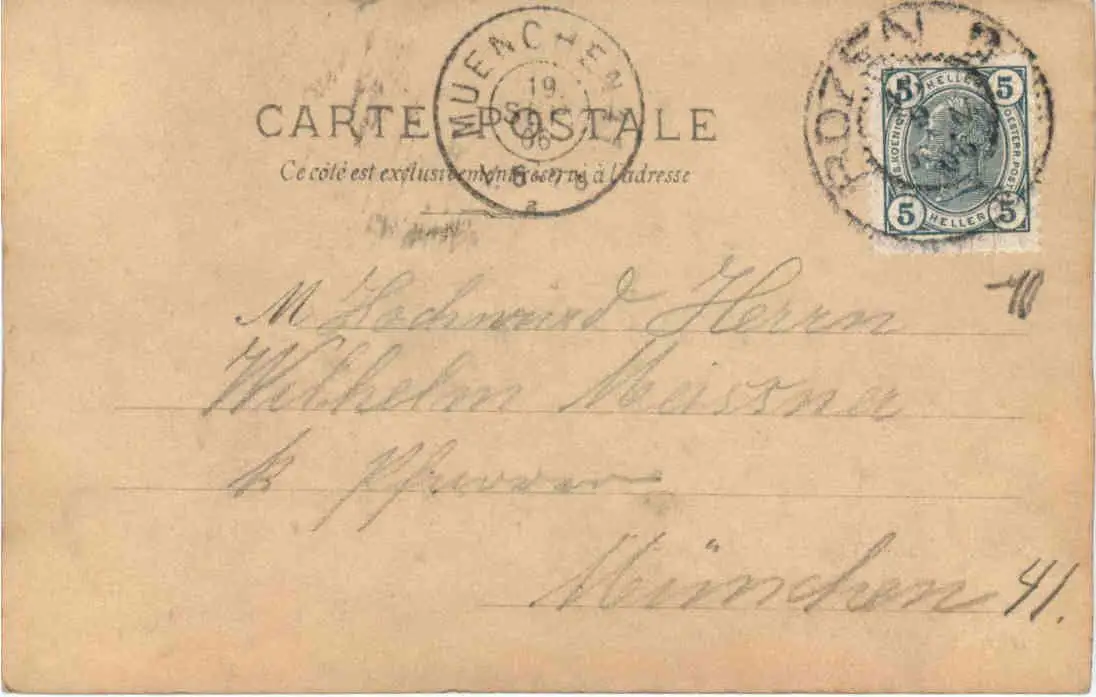 MUENCHEN
19
SEP
06
BOZEN 2
5 HELLER 5
5 HELLER 5
CARTE POSTALE
Ce côté est exclusivement réservé à l'adresse
Hochwürd Herrn
Wilhelm Meissner
k Pfarrer
München 41.